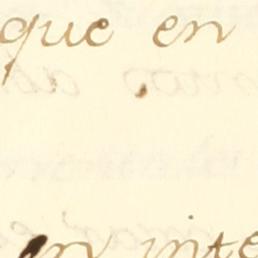 que en
en inte